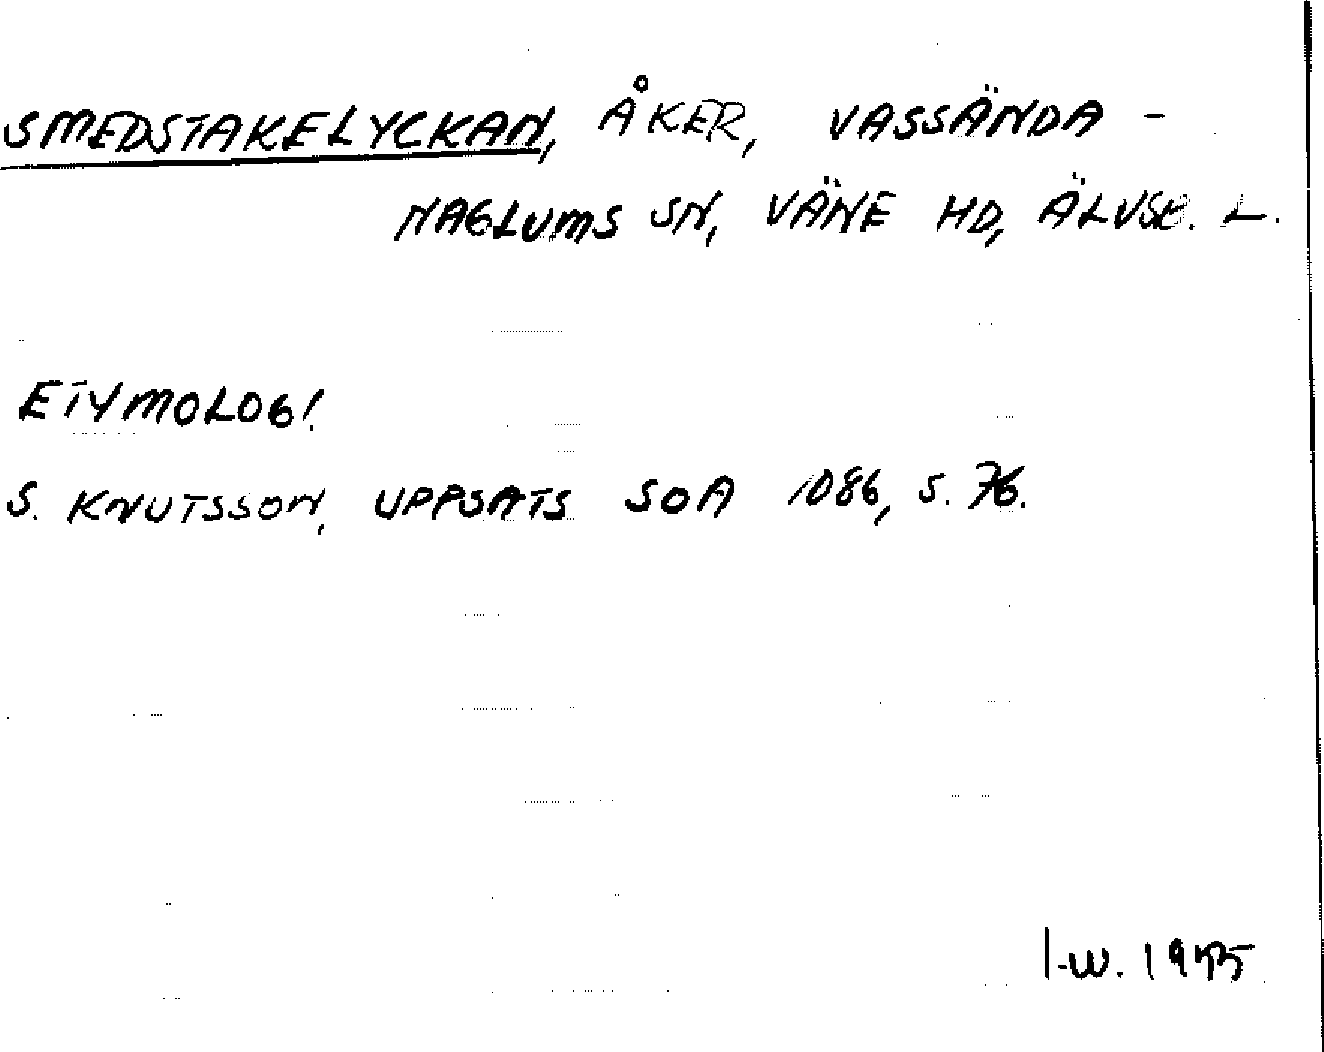 SMEDSTAKELYCKAN, ÅKER, VASSÄNDA -
NAGLUMS SN, VÄNE HD, ÄLVSB. L.
ETYMOLOGI.
S. KNUTSSON, UPPSATS SOA 1086, S. 76.
I-W. 1975